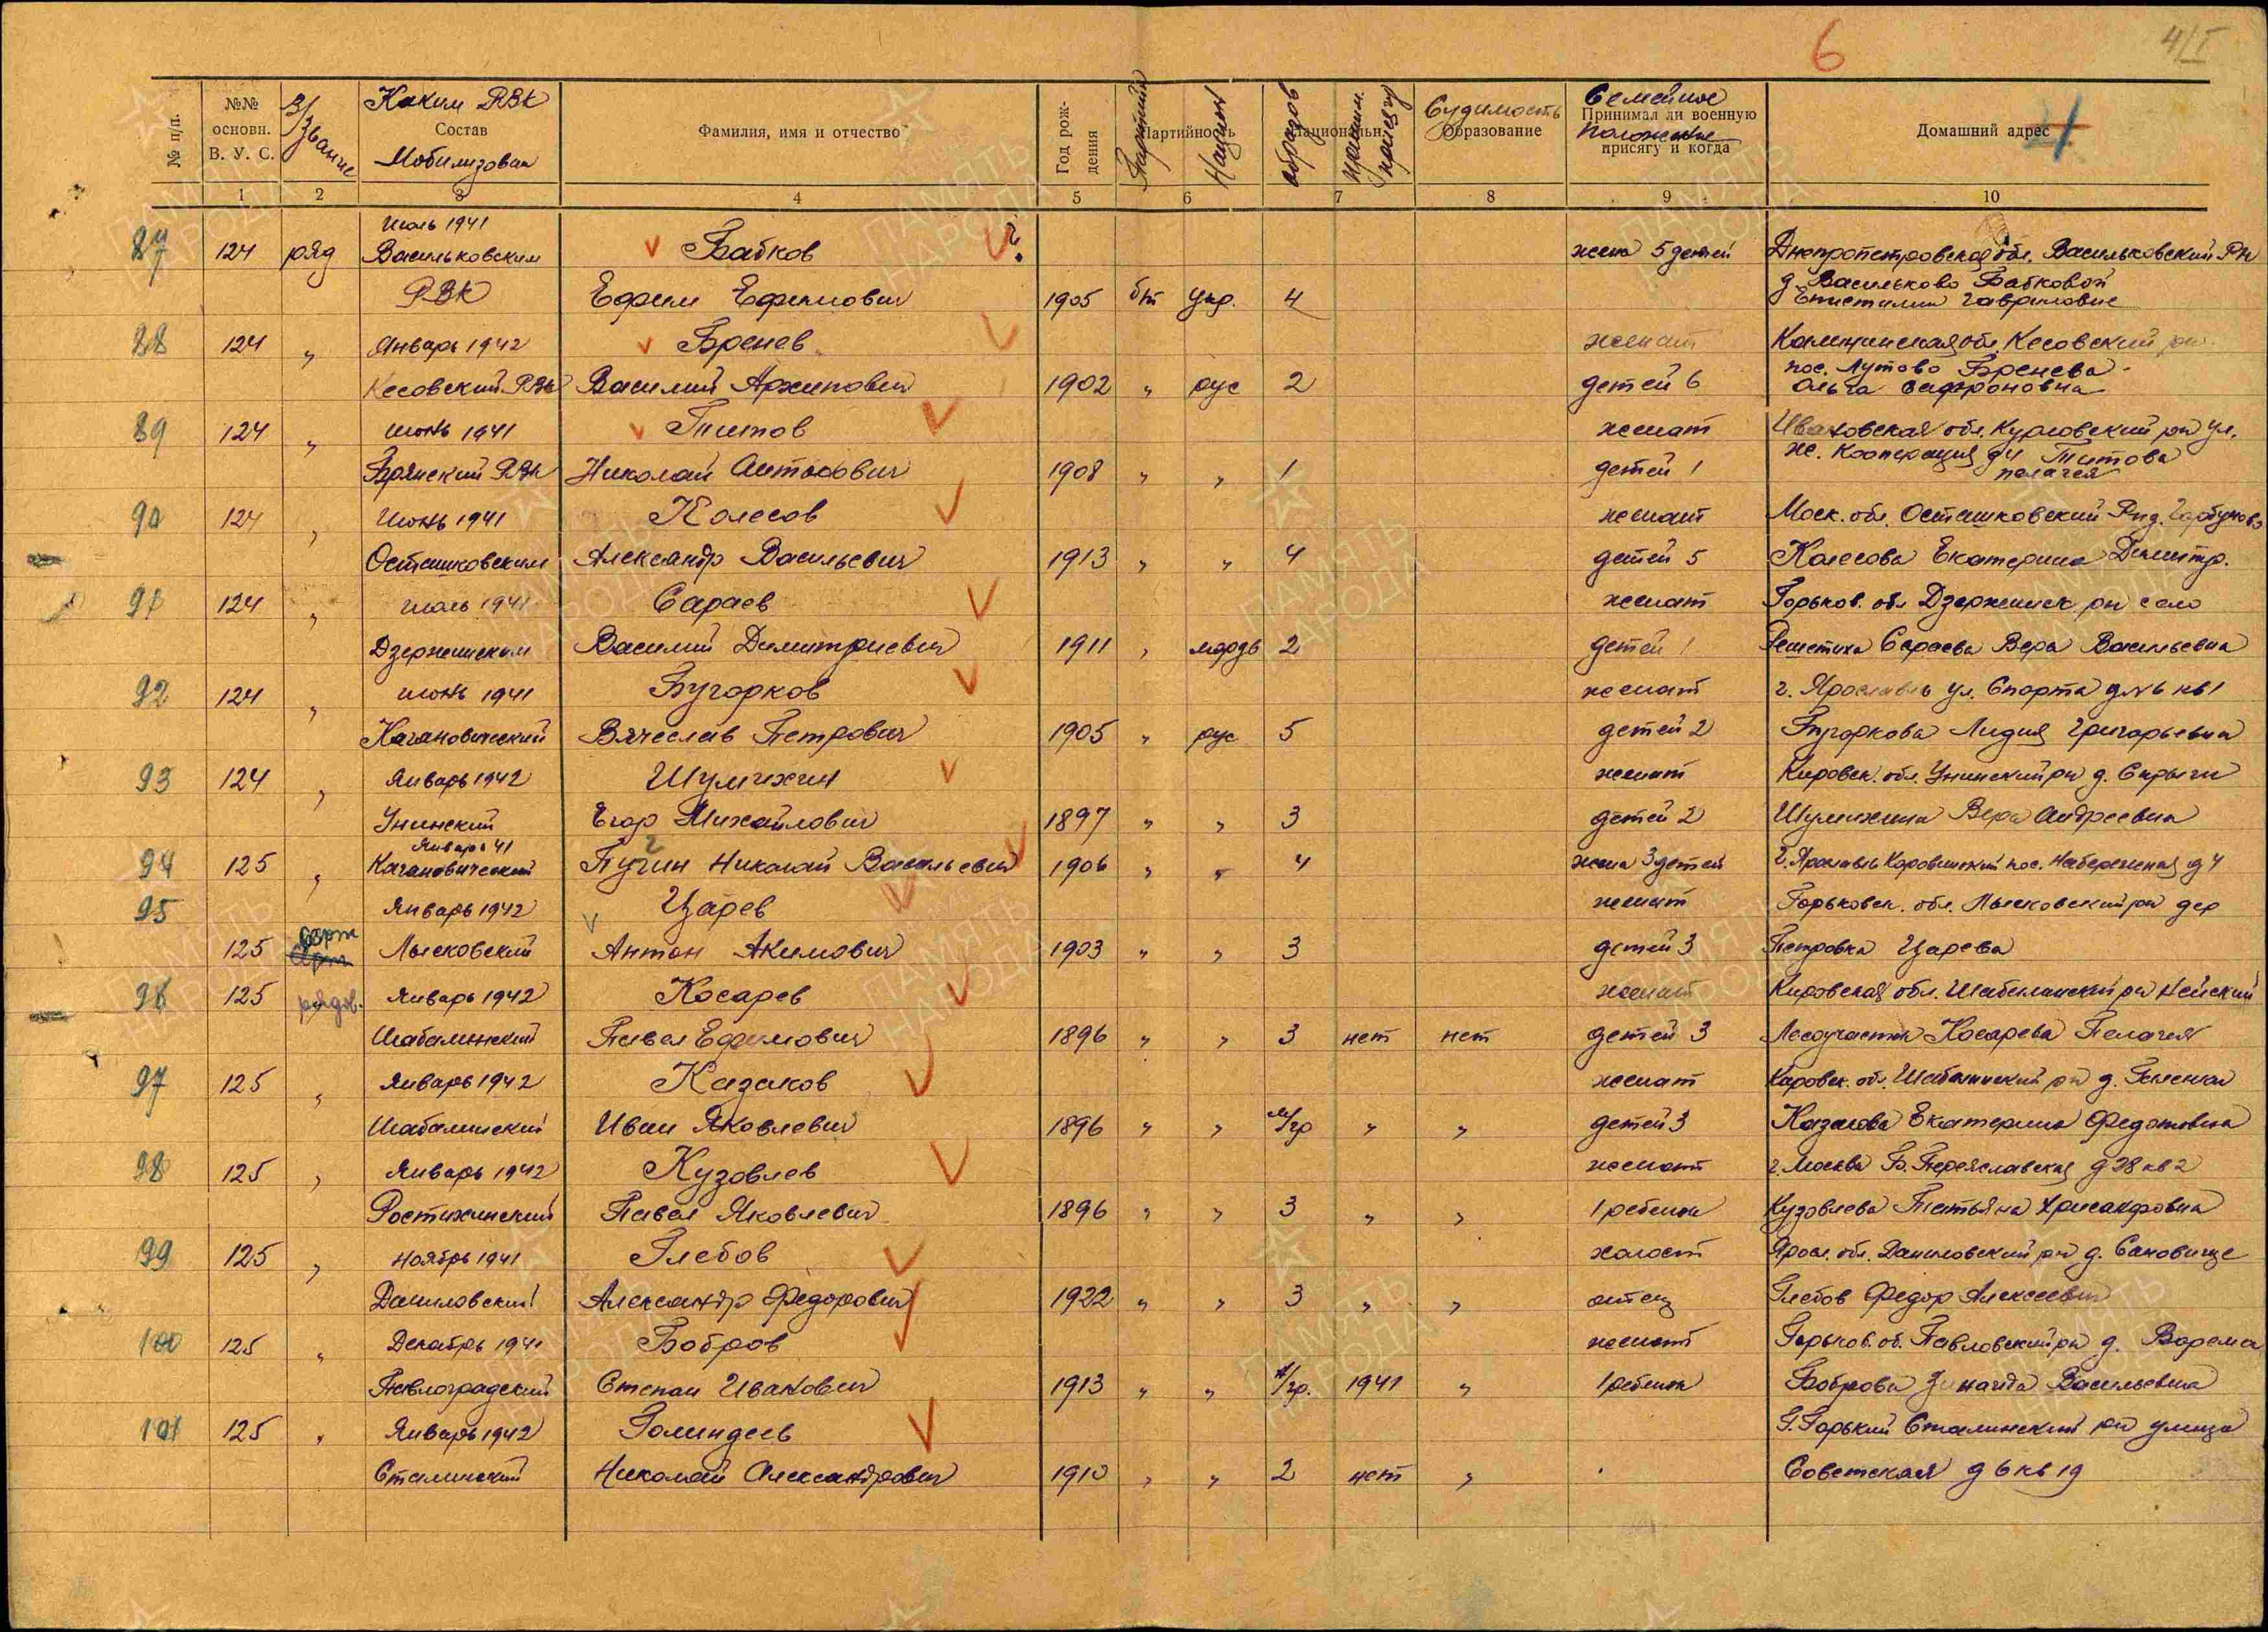 6
4/I
№ п/п.
№№ основн. В. У. С.
В/звание
Каким РВК
Состав
Мобилизован
Фамилия, имя и отчество
Год рождения
Партийность
Национ
Национальн.
образов
приним. присягу
Судимость
Образование
Семейное
Принимал ли военную
положение
присягу и когда
Домашний адрес
1 2 3 4 5 6 7 8 9 10
Июль 1941
87 124 ряд Васильковским Бабков жена 5 детей Днепропетровская обл. Васильковский Рн
РВК Ефрем Ефимович 1905 бп Укр. 4 д Васильково Бабковой
Гавриловне
88 124 " Январь 1942 Бренев женат Калининская обл. Кесовский рн
Кесовский РВК Василий Архипович 1902 " рус 2 детей 6 пос. Лутово Бренева
Ольга Сафроновна
89 124 " июнь 1941 Титов женат Ивановская обл. Курловский рн ул.
Брянский РВК Николай Антонович 1908 " " 1 детей 1 Кооперация д 4 Титова
Пелагея
90 124 " Июнь 1941 Колесов женат Моск. обл. Осташковский Рн д. Горбуново
Осташковским Александр Васильевич 1913 " " 4 детей 5 Колесова Екатерина Димитр.
91 124 " июль 1941 Сараев женат Горьков. обл Дзержинск рн село
Дзержинским Василий Димитриевич 1911 " мордв 2 детей 1 Решетиха Сараева Вера Васильевна
92 124 " июнь 1941 Бугорков женат г. Ярославль ул. Спорта д № 6 кв 1
Кагановический Вячеслав Петрович 1905 " рус 5 детей 2 Бугоркова Лидия Григорьевна
93 124 " Январь 1942 Шумихин женат Кировск. обл. Унинский рн д.
Унинский Егор Михайлович 1897 " " 3 детей 2 Шумихина Вера Андреевна
Январь 41
94 125 " Кагановический Пугин Николай Васильевич 1906 " " 4 жена 3 детей г. Ярославль Коровницкий пос. Набережная д 4
95 Январь 1942 Царев женат Горьковск. обл. Лысковский рн дер
125 серж Лысковский Антон Акимович 1903 " " 3 детей 3 Петровка Царева
96 125 рядов. Январь 1942 Косарев женат Кировская обл. Шабалинский рн Нейский
Шабалинский Павел Ефимович 1896 " " 3 нет нет детей 3 Лесоучасток Косарева Пелагея
97 125 " Январь 1942 Казаков женат Кировск. обл. Шабалинский рн д.
Шабалинский Иван Яковлевич 1896 " " м/гр " " детей 3 Казакова Екатерина Федотовна
98 125 " Январь 1942 Кузовлев женат г. Москва Б. Переяславская д 28 кв 2
Ростокинский Павел Яковлевич 1896 " " 3 " " 1 ребенок Кузовлева Татьяна Хрисанфовна
99 125 " Ноябрь 1941 Глебов холост Яросл. обл. Даниловский рн д. Сановище
Даниловский Александр Федорович 1922 " " 3 " " отец Глебов Федор Алексеевич
100 125 " Декабрь 1941 Бобров женат Горьков. об. Павловский рн д. Ворсма
Павлоградский Степан Иванович 1913 " " н/гр. 1941 " 1 ребенок Боброва Зинаида Васильевна
101 125 " Январь 1942 Голиндеев Г. Горький Сталинский рн улица
Сталинский Николай Александрович 1910 " " 2 нет " Советская д 6 кв 19
ПАМЯТЬ НАРОДА